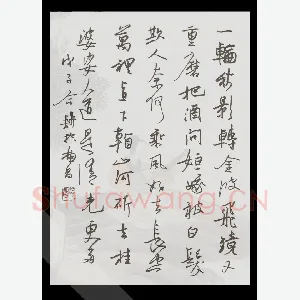 一輪秋影轉金波飛鏡又
重磨把酒問姮娥被白髮
欺人奈何乘風好去長空
萬裡直下看山河斫去桂
婆娑人道是清光更多
戊子
Shufawang.CN